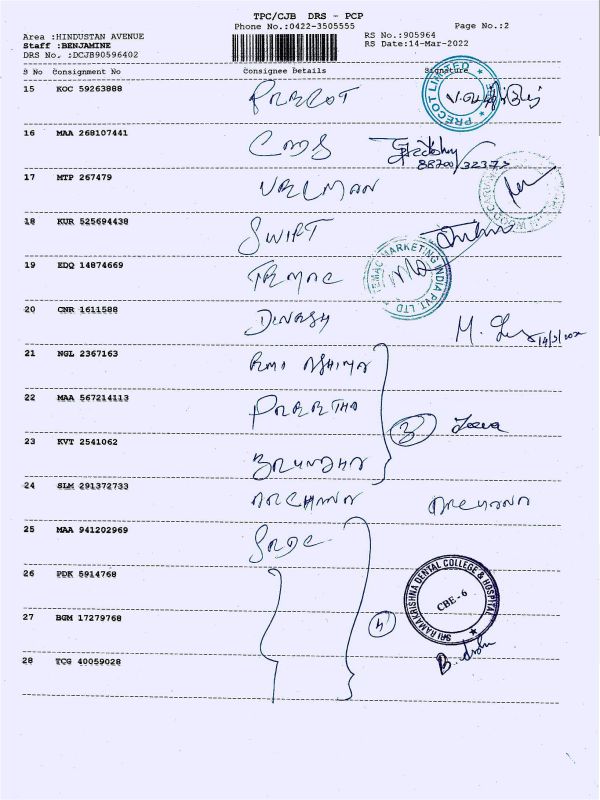 TPC/CJB DRS - PCP
Phone No.:0422-3505555
Page No.:2
Area :HINDUSTAN AVENUE
Staff :BENJAMINE
RS No.:905964
RS Date:14-Mar-2022
DRS No. :DCJB90596402
S No Consignment No Consignee Details Signature
15 KOC 59263888 PRECOT
PRECOT LIMITED
16 MAA 268107441
17 MTP 267479
18 KUR 525694438 SWIFT
19 EDQ 14874669 TEMAC
TEMAC MARKETING INDIA PVT LTD
20 CNR 1611588 DINESH
21 NGL 2367163
22 MAA 567214113
23 KVT 2541062 BRUNDHA
3
24 SLM 291372733 ARCHANA ARCHANA
25 MAA 941202969 SRDC
26 PDK 5914768
SRI RAMAKRISHNA DENTAL COLLEGE & HOSPITAL
CBE - 6
27 BGM 17279768 4
28 TCG 40059028